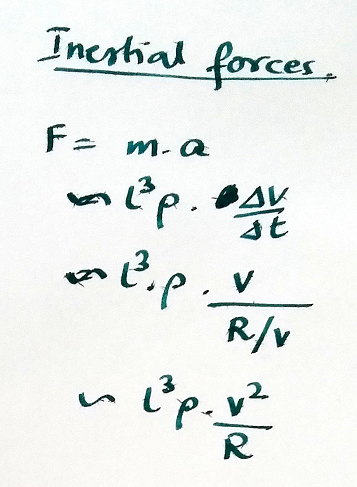 Inertial forces.
F = m. a
~ l³ρ. ΔV/Δt
~ l³.ρ. v/(R/v)
~ l³ρ. v²/R